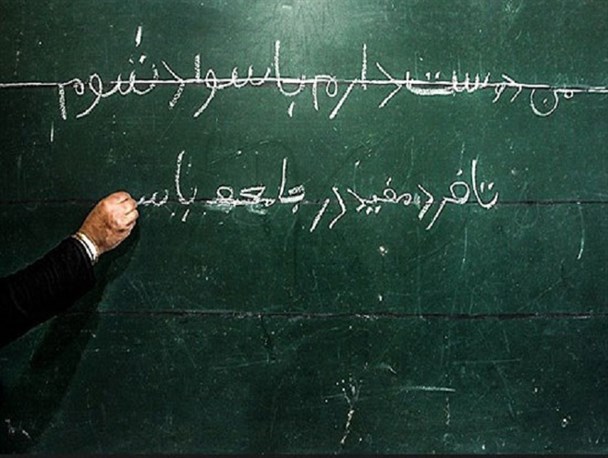 من دوست دارم باسواد شوم
تا فرد مفید در جامعه باس